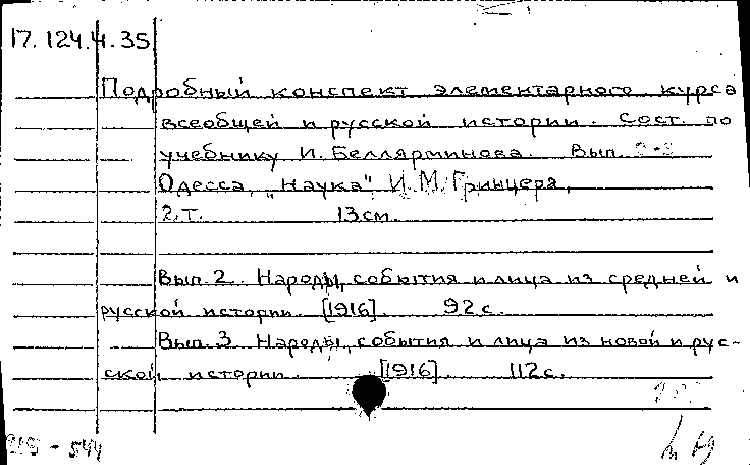 17.124.4.35
Подробный конспект элементарного курса
всеобщей и русской истории. Сост. по
учебнику И. Беллярминова. Вып. 2-3
Одесса, "Наука" И.М. Гринцера,
2 т. 13 см.
Вып. 2. Народы, события и лица из средней и
русской истории. [1916]. 92 с.
Вып. 3. Народы, события и лица из новой и рус-
ской истории. [1916]. 112 с.
- 544